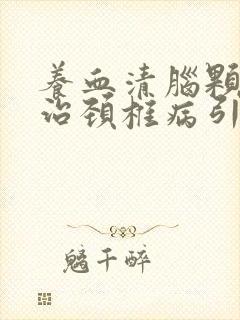 養血清腦顆
治頸椎病引
千醉